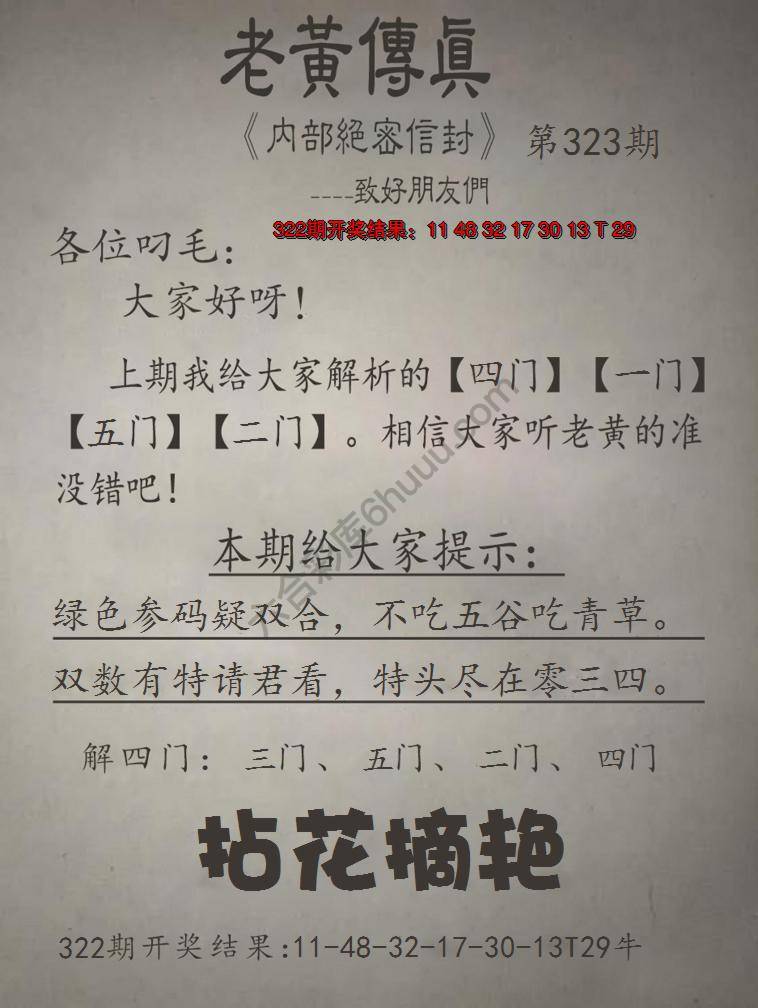 老黃傳真
《内部絕密信封》 第323期
----致好朋友們
322期开奖结果：11 48 32 17 30 13 T 29
各位叼毛：
大家好呀！
上期我给大家解析的【四门】【一门】
【五门】【二门】。相信大家听老黄的准
没错吧！
本期给大家提示：
绿色参码疑双合，不吃五谷吃青草。
双数有特请君看，特头尽在零三四。
解四门：三门、五门、二门、四门
拈花摘艳
322期开奖结果:11-48-32-17-30-13T29牛
六合彩库6huuu.com